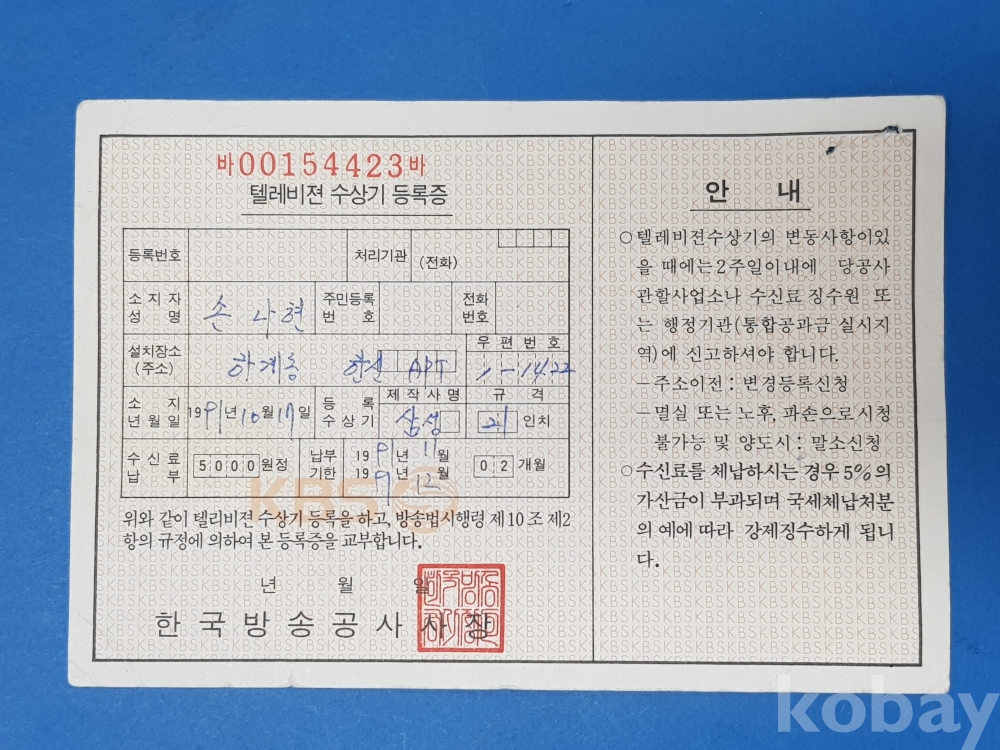 바00154423바
텔레비젼 수상기 등록증
등록번호 처리기관 (전화)
소지자 성명 손나현 주민등록번호 전화번호
설치장소 (주소) 하계동 한신 APT 우편번호 1-1422
소지년월일 1991년 10월 17일 등록수상기 제작사명 삼성 규격 21 인치
수신료납부 5000원정 납부기한 1991년 11월 199년 12월 02개월
KBS
위와 같이 텔리비젼 수상기 등록을 하고, 방송법시행령 제10조 제2
항의 규정에 의하여 본 등록증을 교부합니다.
년 월 일
한국방송공사사장
안 내
○텔레비젼수상기의 변동사항이있
을 때에는2주일이내에 당공사
관할사업소나 수신료 징수원 또
는 행정기관(통합공과금 실시지
역)에 신고하셔야 합니다.
―주소이전 : 변경등록신청
―멸실 또는 노후, 파손으로 시청
불가능 및 양도시 : 말소신청
○수신료를 체납하시는 경우 5%의
가산금이 부과되며 국세체납처분
의 예에 따라 강제징수하게 됩니
다.
kobay